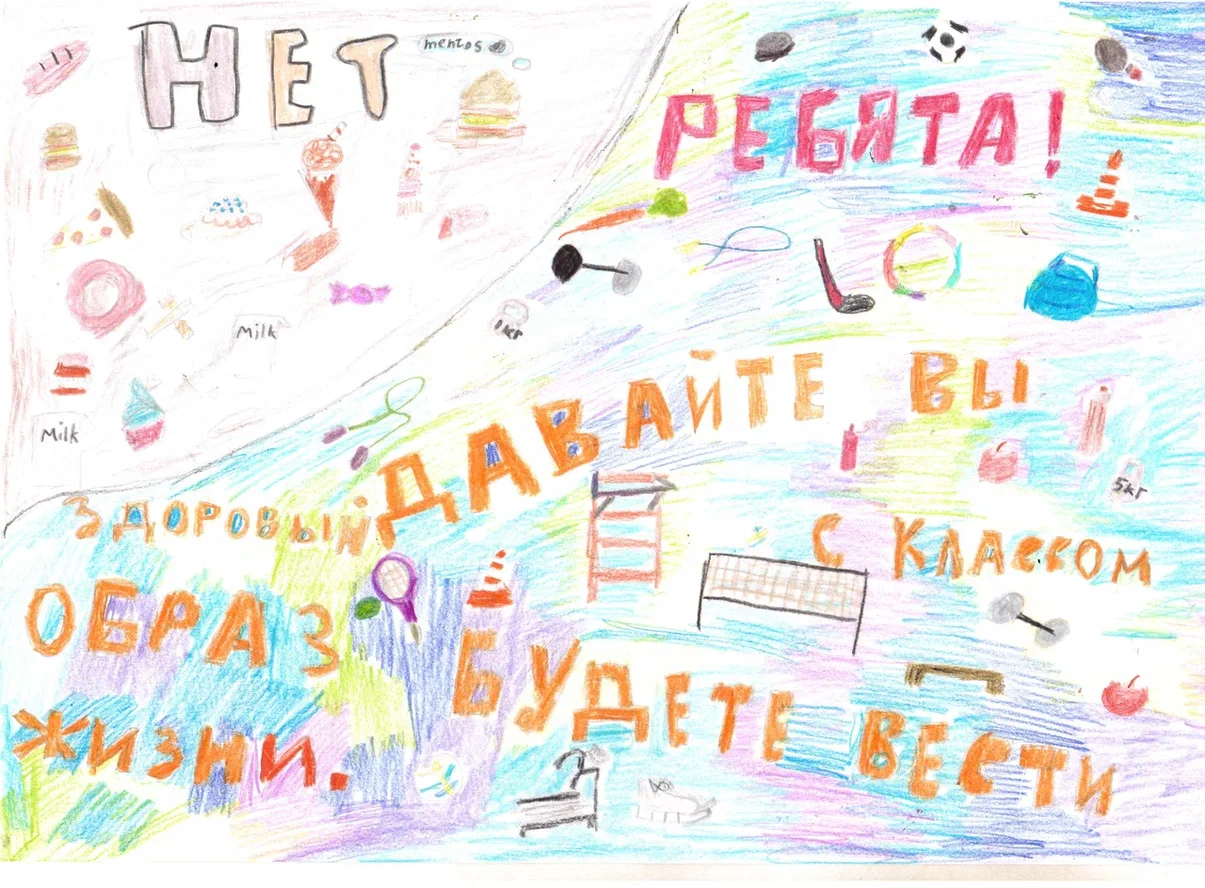 НЕТ
mentos
Milk
Milk
РЕБЯТА!
1кг
ДАВАЙТЕ ВЫ
5кг
С КЛАССОМ
БУДЕТЕ ВЕСТИ
ЗДОРОВЫЙ
ОБРАЗ
ЖИЗНИ.